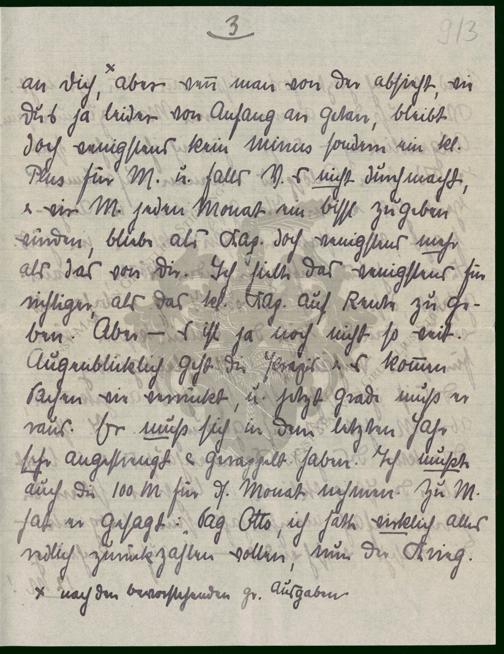 3
9/3
an dich,ˣ aber wenn man von der absieht, wie
Du's ja leider von Anfang an getan, bleibt
doch wenigstens kein Minus sondern ein kl.
Plus für M. u. falls V. es nicht durchmacht,
& wir M. jeden Monat ein bissl zugeben
würden, bliebe als Kap. doch wenigstens mehr
als das von dir. Ich hielte das wenigstens für
richtiger, als das kl. Kap. auf Rente zu ge-
ben. Aber — es ist ja noch nicht so weit.
Augenblicklich geht die Praxis & es kommen
Sachen wie verrückt, u. jetzt grade muss er
raus. Er muss sich in dem letzten Jahr
sehr angestrengt & gerappelt haben. Ich musste
auch die 100 M für d. Monat nehmen. Zu M.
hat er gesagt: „sag Otto, ich hätte wirklich alles
redlich zurückzahlen wollen, nun der Krieg.
x nach den bevorstehenden gr. Ausgaben